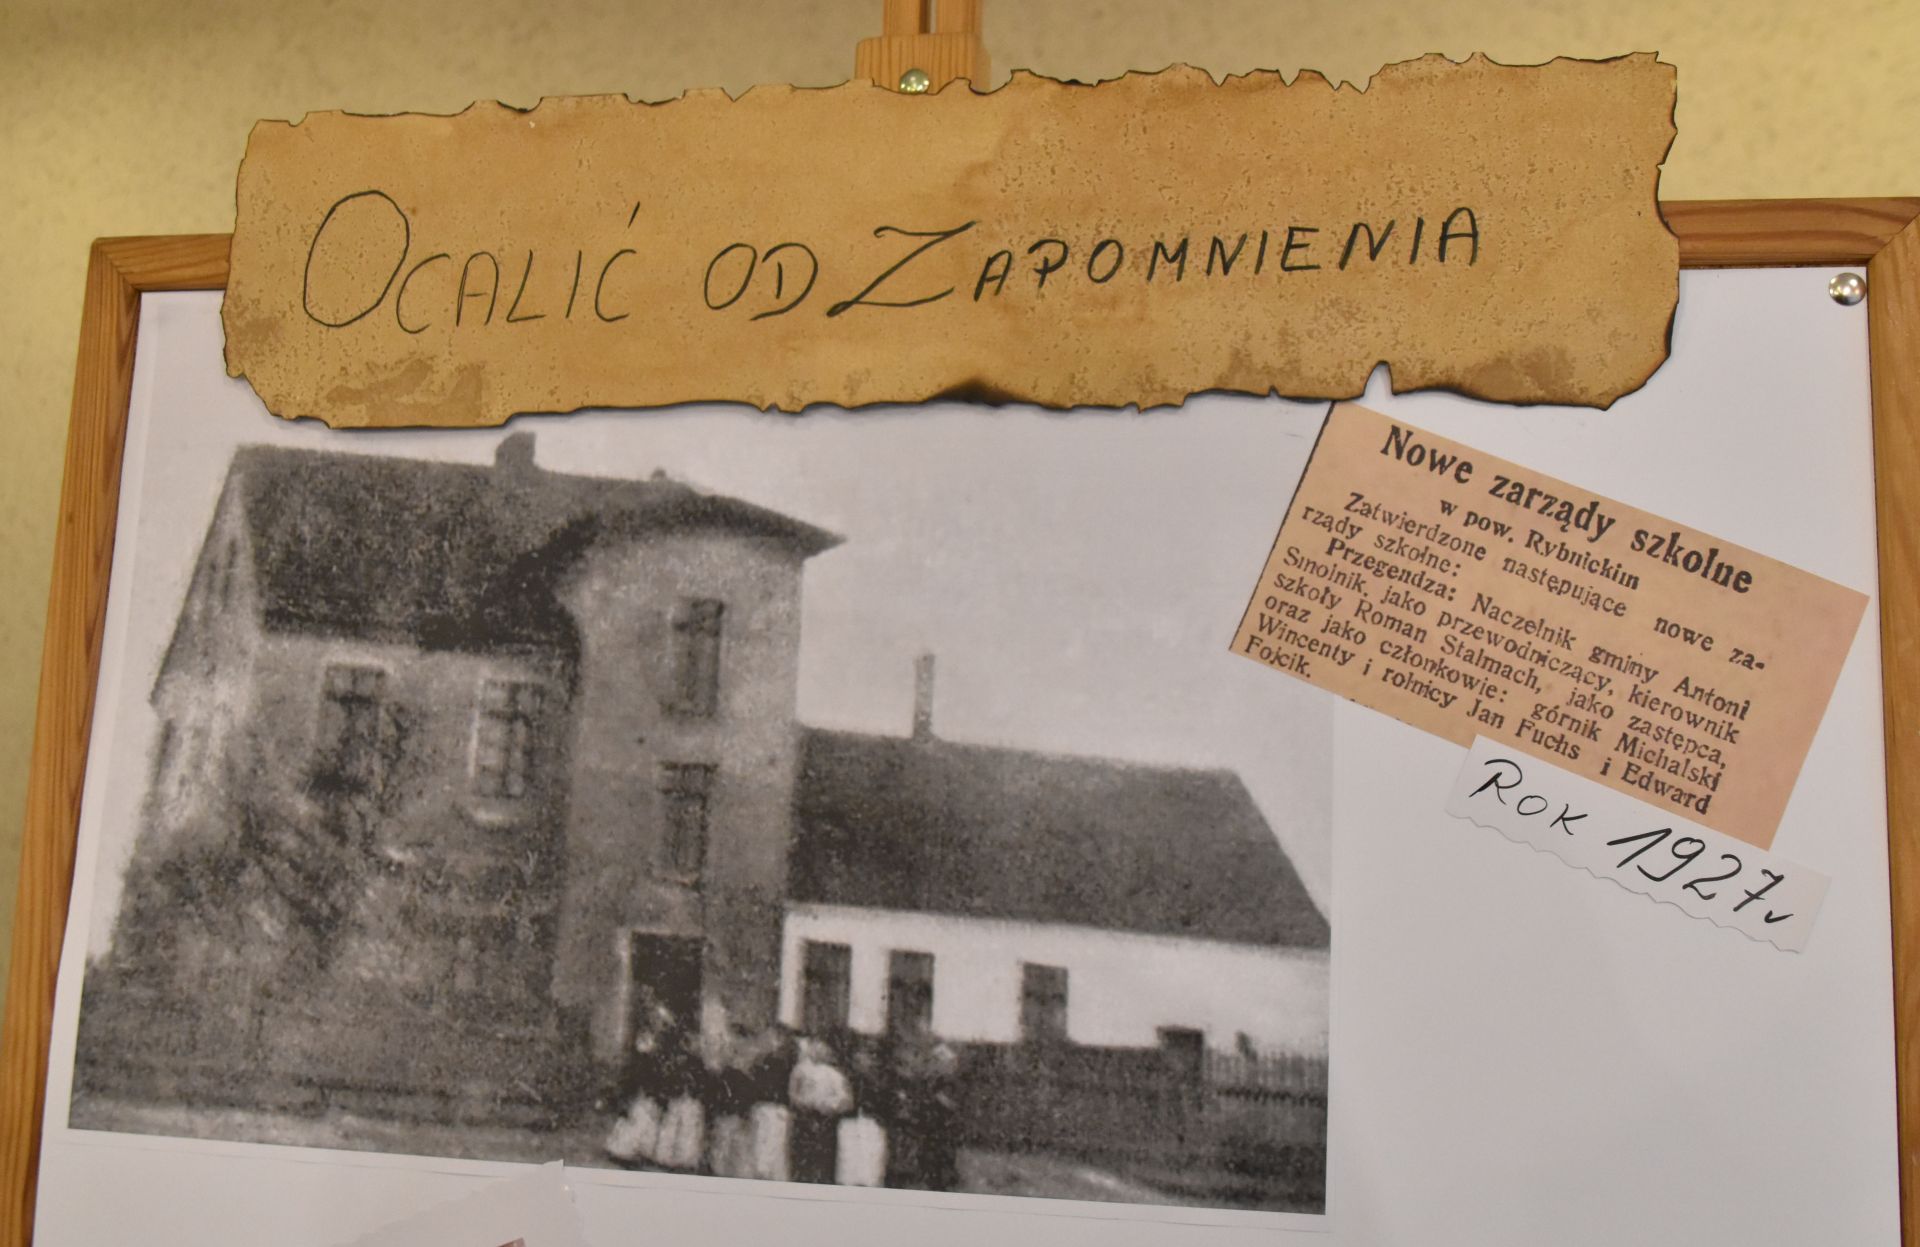 OCALIĆ OD ZAPOMNIENIA
Nowe zarządy szkolne
w pow. Rybnickim
Zatwierdzone następujące nowe za-
rządy szkolne:
Przegendza: Naczelnik gminy Antoni
Smolnik, jako przewodniczący, kierownik
szkoły Roman Stalmach, jako zastępca,
oraz jako członkowie: górnik Michalski
Wincenty i rolnicy Jan Fuchs i Edward
Fojcik.
ROK 1927